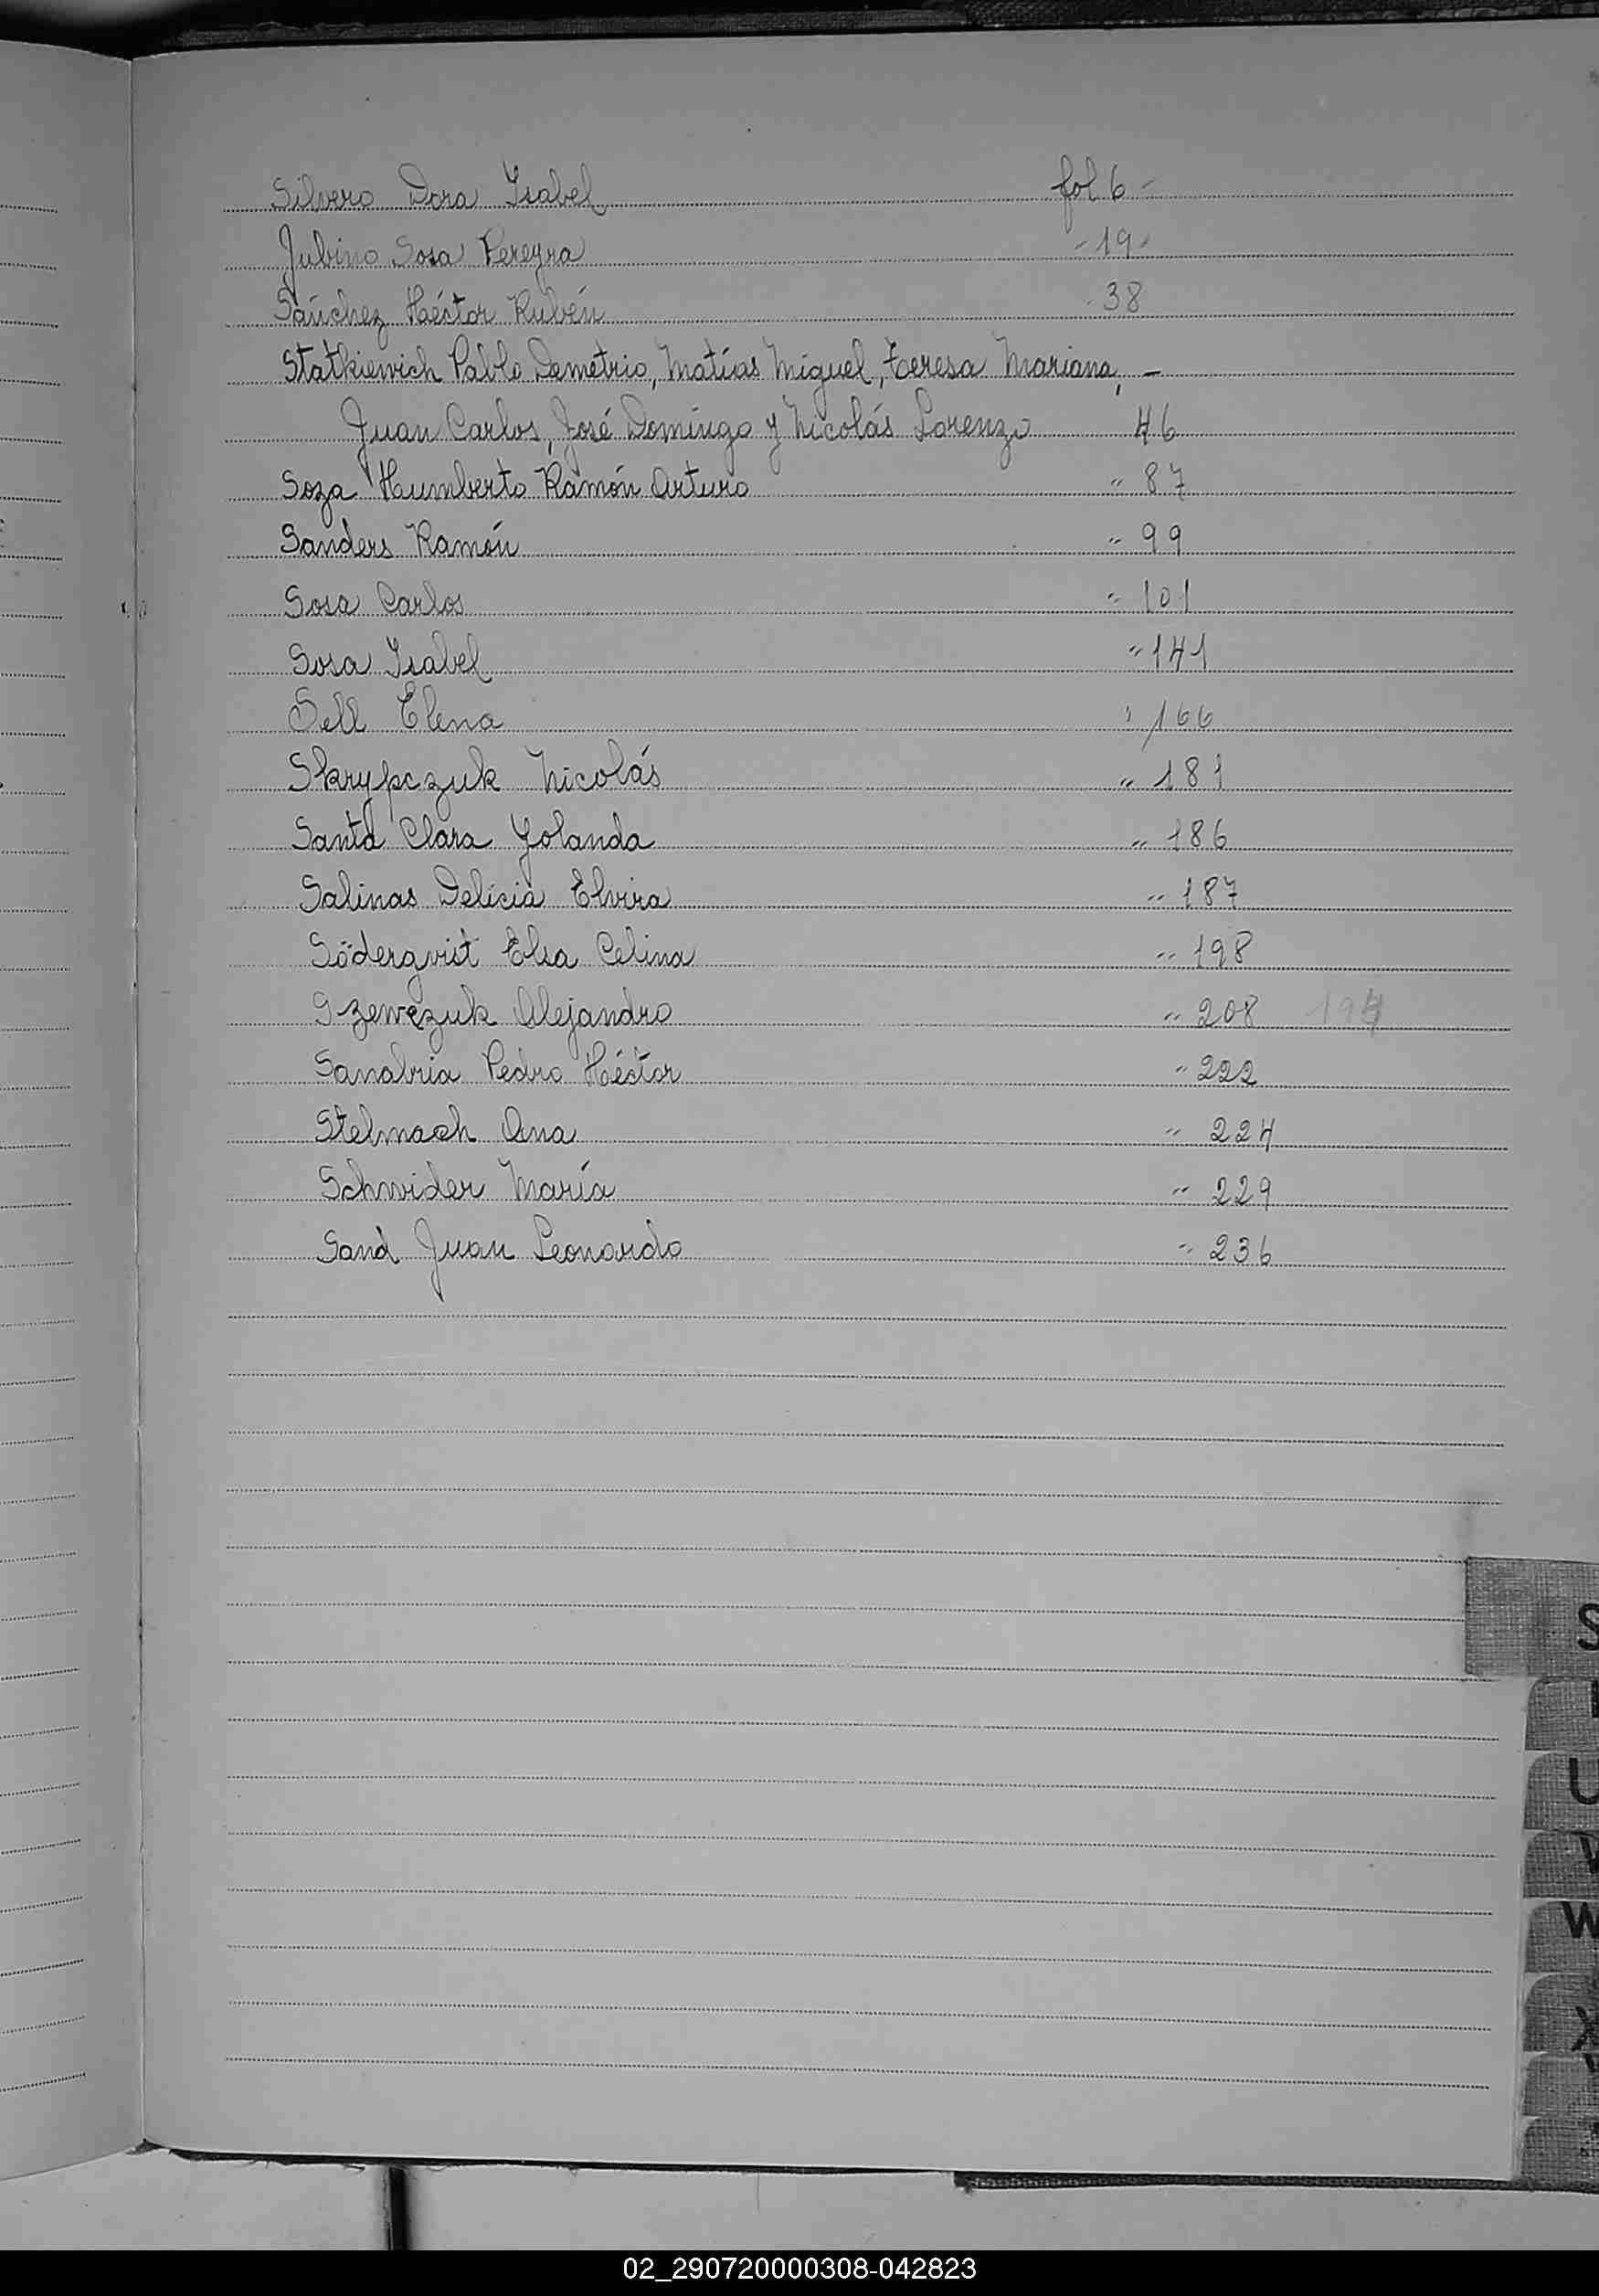 Silvero Dora Isabel fol 6 -
Jubino Sosa Pereyra " 19 "
Sánchez Héctor Rubén " 38
Statkiewich Pablo Demetrio, Matías Miguel, Teresa Mariana, -
Juan Carlos, José Domingo y Nicolás Lorenzo 46
Soza Humberto Ramón Arturo " 87
Sanders Ramón " 99
Sosa Carlos " 101
Sosa Isabel " 141
Sell Elena " 166
Skrypczuk Nicolás " 181
Santa Clara Yolanda " 186
Salinas Delicia Elvira " 187
Söderqvist Elsa Celina " 198
Szewczuk Alejandro " 208
Sanabria Pedro Héctor " 222
Stelmach Ana " 224
Schwider María " 229
Sand Juan Leonardo " 236
S
U
W
X
02_290720000308-042823